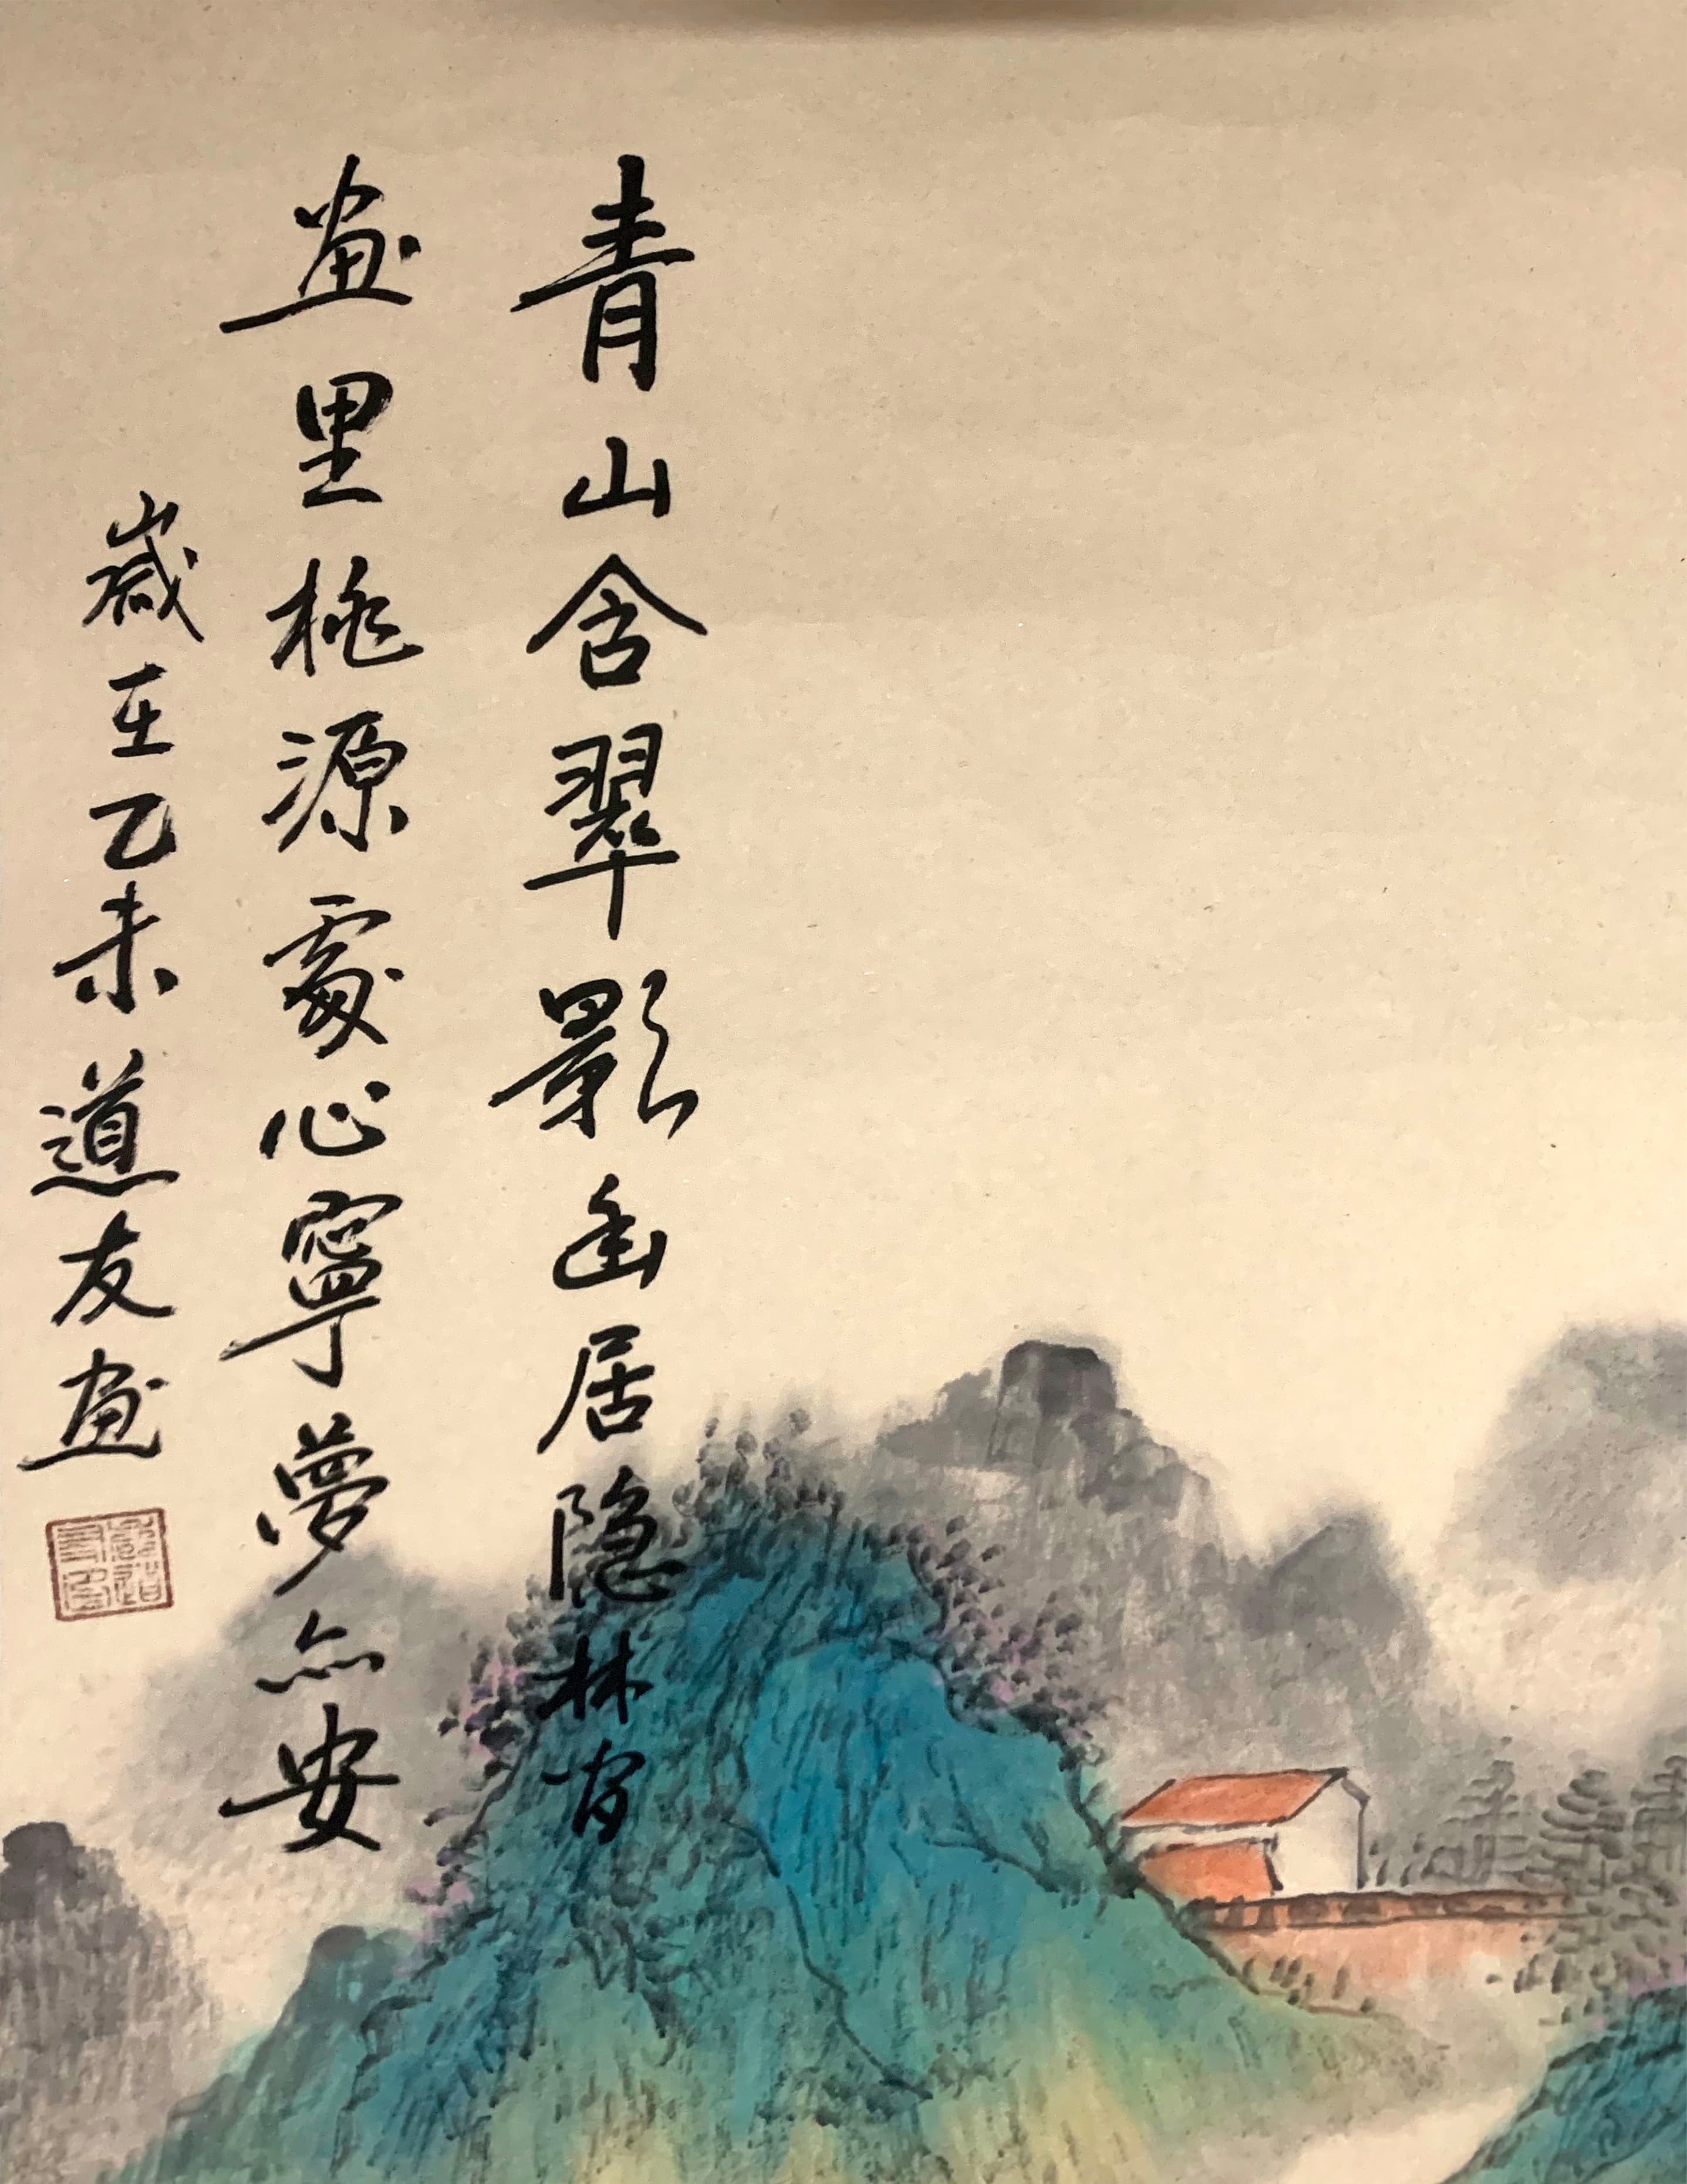 青山含翠影幽居隐林间
画里桃源处心宁梦亦安
岁在乙未道友画